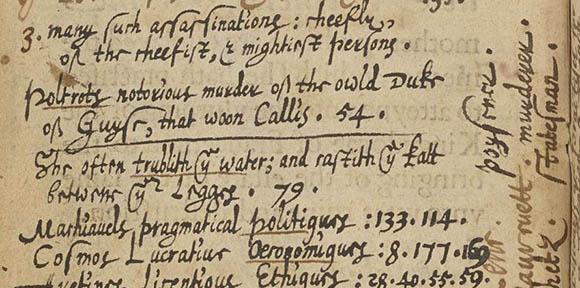 3. many such assassinations: cheefly,
of the cheefist, & mightiest persons
Poltrots notorious murder of the owld Duke
of Guyse, that woon Callis. 54.
She often trublith yᵉ water; and castith yᵉ katt
betwene yʳ Legges. 79.
Machiavels pragmatical politiques: 133. 114.
Cosmos Lucrative Oeconomiques: 8. 177. 169
Licentious Ethiques: 28. 40. 55. 59.
poysener.
murderer.
statesman.